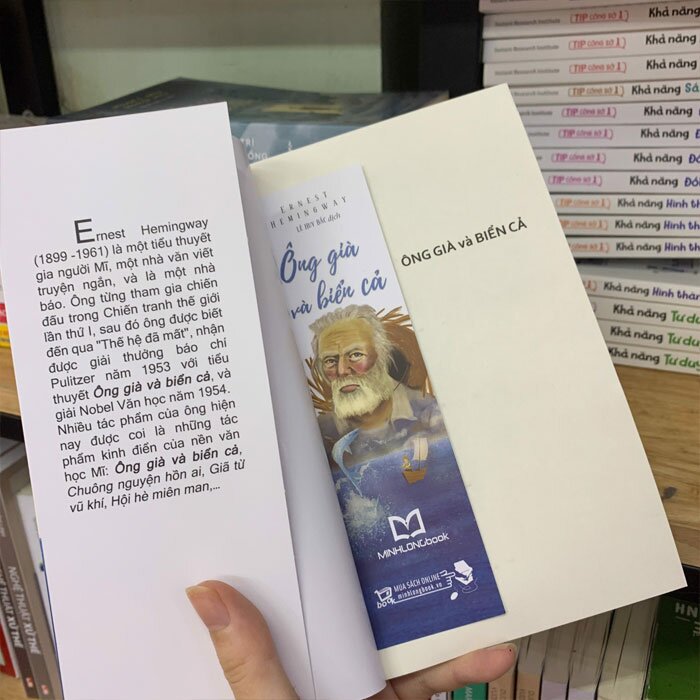 Ernest Hemingway
(1899 -1961) là một tiểu thuyết
gia người Mĩ, một nhà văn viết
truyện ngắn, và là một nhà
báo. Ông từng tham gia chiến
đấu trong Chiến tranh thế giới
lần thứ I, sau đó ông được biết
đến qua "Thế hệ đã mất", nhận
được giải thưởng báo chí
Pulitzer năm 1953 với tiểu
thuyết Ông già và biển cả, và
giải Nobel Văn học năm 1954.
Nhiều tác phẩm của ông hiện
nay được coi là những tác
phẩm kinh điển của nền văn
học Mĩ: Ông già và biển cả,
Chuông nguyện hồn ai, Giã từ
vũ khí, Hội hè miên man,...
ERNEST
HEMINGWAY
LÊ HUY BẮC dịch
Ông già
và biển cả
MINHLONGbook
MUA SÁCH ONLINE
book
minhlongbook.vn
ÔNG GIÀ và BIỂN CẢ
TIP công sở 1 Khả năng
TIP công sở 1 Khả năng
TIP công sở 1 Khả năng
TIP công sở 1 Khả năng
TIP công sở 1 Khả năng Sá
TIP công sở 1 Khả năng
TIP công sở 1 Khả năng
TIP công sở 1 Khả năng Đối
TIP công sở 1 Khả năng Đối
TIP công sở 1 Khả năng Hình th
TIP công sở 1 Khả năng Hình
TIP công sở 1 Khả năng Hình
Khả năng Hình thàn
Khả năng Tư du
Khả năng Tư duy
Khả năng Tư duy
NGHỆ THUẬT XỬ THẾ